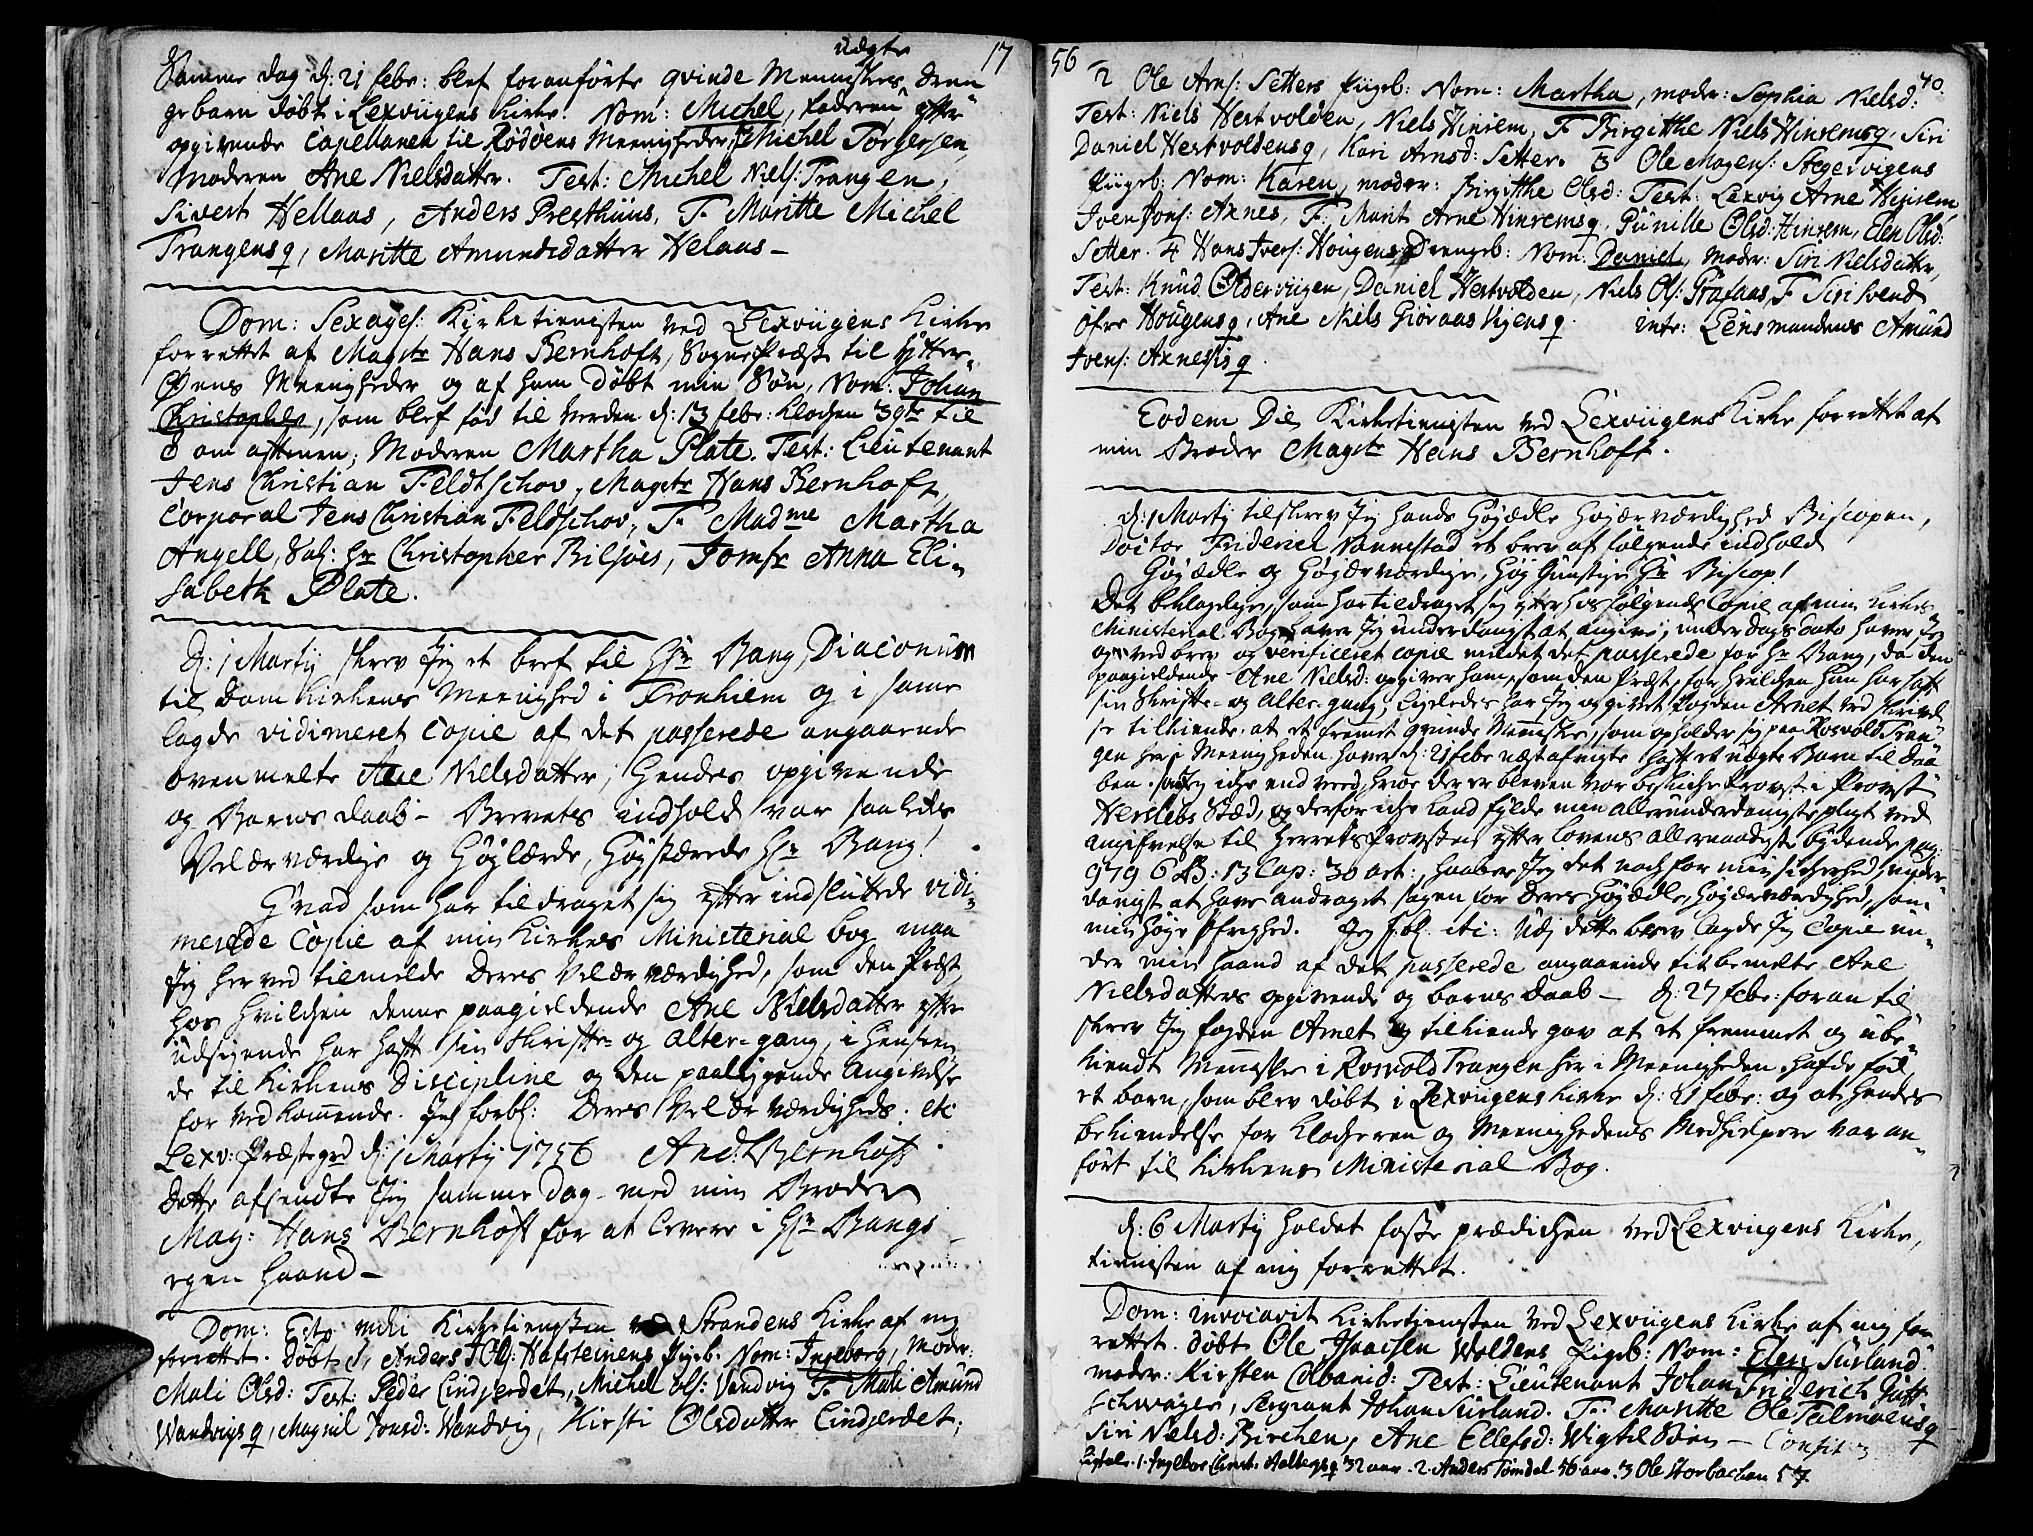 17
udgte
Samme dag d: 21 febr: blef foranförte qvinde Menniskes dren
gebarn döbt i Lexvigens Kirke. Nom: Michel, faderen efter
opgivende Capellanen til Rödöens Meenigheder Hr Michel Torgersen,
Moderen Ane Nielsdatter. Test: Michel Niels: Trangen,
Sivert Hellaas, Anders Presthüus, F. Maritte Michel
Trangens q, Maritte Amundsdatter Helaas —
Dom: Sexages: Kirketienisten ved Lexviigens Kirke
forrettet af Magstr Hans Bernhoft, SognePræst til Ytter-
Öens Meenigheder og af ham döbt min Sön, Nom: Johan
Christopher, som blef föd til Verden d: 13 febr: Klochen 3qtr til
8 om aftenen; Moderen Martha Plate. Test: Lieutenant
Jens Christian Feldtschov, Magstr Hans Bernhoft,
Corporal Jens Christian Feldschov, F. Madme Martha
Angell, Sal: Hr Christopher Bilsöes, Jomfr Anna Eli-
sabeth Plate.
D: 1 Martij skrev Jeg et bref til Hr Bang, Diaconum
til Dom Kirkens Meenighed i Tronhiem og i samme
lagde vidimeret Copie af det passerede angaaende
ovenmelte Ane Nielsdatter, Hendes opgivende
og Barns daab — Brevets indhold var saaledes
Velærværdige og Höylærde, Höystærede Hr Bang!
Hvad som har tildraget sig efter indsluttede vidi-
merede Copie af min Kirkes Ministerial bog maa
Jeg herved tilmelde Deres Velærværdighed, som den Præst
hos hvilchen denne paagieldende Ane Nielsdatter efter
udsigende har haft sin Skrifte- og Alter-gang, i henseen
de til Kirkens Discipline og den paaliggende Angivelse
for Vedkommende. Jeg forbl: Deres Velærværdigheds. etc
Lexv: Præstegrd d: 1 Martij 1756 And: Bernhoft
Dette afsendte Jeg samme dag med min Broder
Mag: Hans Bernhoft for at levere i Hr Bangs
egen haand —
Dom: Esto mihi Kirketienesten ved Strandens Kirke af mig
forrettet. Döbt 1, Anders Ols: Hafsteinens Pigeb. Nom: Ingeborg, Moder:
Mali Olsd: Test: Peder Lindserdet, Michel Ols: Vandvig F. Mali Amünd
Wandvigs q, Magnil Jonsd: Wandvig, Kirsti Olsdatter Lindserdet;
56
40
2 Ole Arns: Setters Piigeb: Nom: Martha, moder: Sophia Nielsd:
Test: Niels Hestvolden, Niels Hinsem, F. Birgitthe Niels Hinsems q, Siri
Daniel Hestvoldens q, Kari Arnsd: Setter. 3 Ole Mogens: Stegervigens
Piigeb: Nom: Karen, moder: Birgitthe Olsd: Test: Lexvig Arne Hinsem
Iver Jons: Axnes, F. Marit Arne Hinsems q, Pünille Olsd: Hinsem, Elen Olsd:
Setter. 4 Hans Ivers: Höugens Drengeb: Nom: Daniel, moder: Siri Nielsdatter,
Test: Knud Oldervigen, Daniel Hestvolden, Niels Ols: Gräfaas, F. Siri Svend
Öfre Höugens q, Ane Niels Giövaas Vigens q. Intr: Lensmandens Amünd
Ivers: Axnesses q.
Eodem Die Kirketienisten ved Lexviigens Kirke forrettet af
min Broder Magstr Hans Bernhoft.
D: 1 Martij tilskrev Jeg hands Höjædle Höjærværdighed Biscopen,
Doctor Friderich Nannestad et brev af fölgende indhold
Höjædle og Höjærværdige, Höj Gunstige Hr Biscop!
Det beklagelige, som har tildraget sig efter hos fölgende Copie af min Kirkes
Ministerial Bog haver Jeg underdanigst at angive; under dags dato haver Jeg
og ved brev og verificeret Copie meldet det passerede for Hr Bang, da den
paagieldende Ane Nielsd: opgiver ham, som den Præst, for hvilchen hun har haft
sin Skrifte- og Alter-gang, ligeledes har Jeg og givet fogden Arnet ved skrivel
se tilkiende, at et fremmet qvinde Menniske, som opholder sig paa Rosvold Tran-
gen her i Meenigheden haver d: 21 febr næst afvigte haft et uægte Barn til Daa
ben. saa Jeg icke end veed, hvor der er bleven vor beskickede Provst i Provst
Herslebs Stæd, og derfor icke kand fylde min allerunderdanigste pligt ved
angifvelse til Herrets Provsten efter Lovens allernaadigste bydende pag:
979 6 B: 13 Cap: 30 art:, haaber Jeg det noch for min sicherhed under-
danigst at have andraget sagen for Deres Höjædle, Höjærværdighed, som
min höje Öfrighed. Jeg forbl. etc: Udj dette brev lagde Jeg Copie un-
der min haand af det passerede angaaende titbemelte Ane
Nielsdatters opgivende og barns Daab — D: 27 febr: foran til
skrev Jeg fogden Arnet og tilkiende gav at et fremmet og ube-
kiendt Menniske i Rosvold Trangen her i Meenigheden hafde föd
et barn, som blev döbt i Lexvigens Kirke d: 21 febr: og at hendes
bekiendelse for Klockeren og Meenighedens Medhielpere var an-
fört til Kirkens Ministerial Bog.
D: 6 Martij holdet faste prædichen ved Lexviigens Kirke,
tienisten af mig forrettet.
Dom: invocavit Kirketienisten ved Lexviigens Kirke af mig for
rettet. döbt Ole Isacsen Woldens Pigeb: Nom: Elen Surland.
moder: Kirsten Colbanid: Test: Lieutenant Johan Friderich
Schwager, Sergiant Johan Surland. F. Maritte Ole Talmoens q
Siri Nielsd: Birchen, Ane Ellefsd: Wigtil Böen — Confit:
Sepult: 1. Ingebor Christ: Aalbergs q 32 aar. 2. Anders Tömdel 56 aar. 3 Ole Storbachan 57.